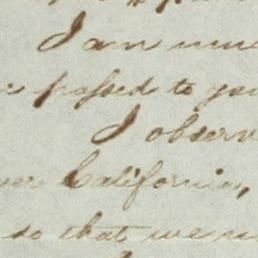 I am
passed to
I observ
California,
so that we